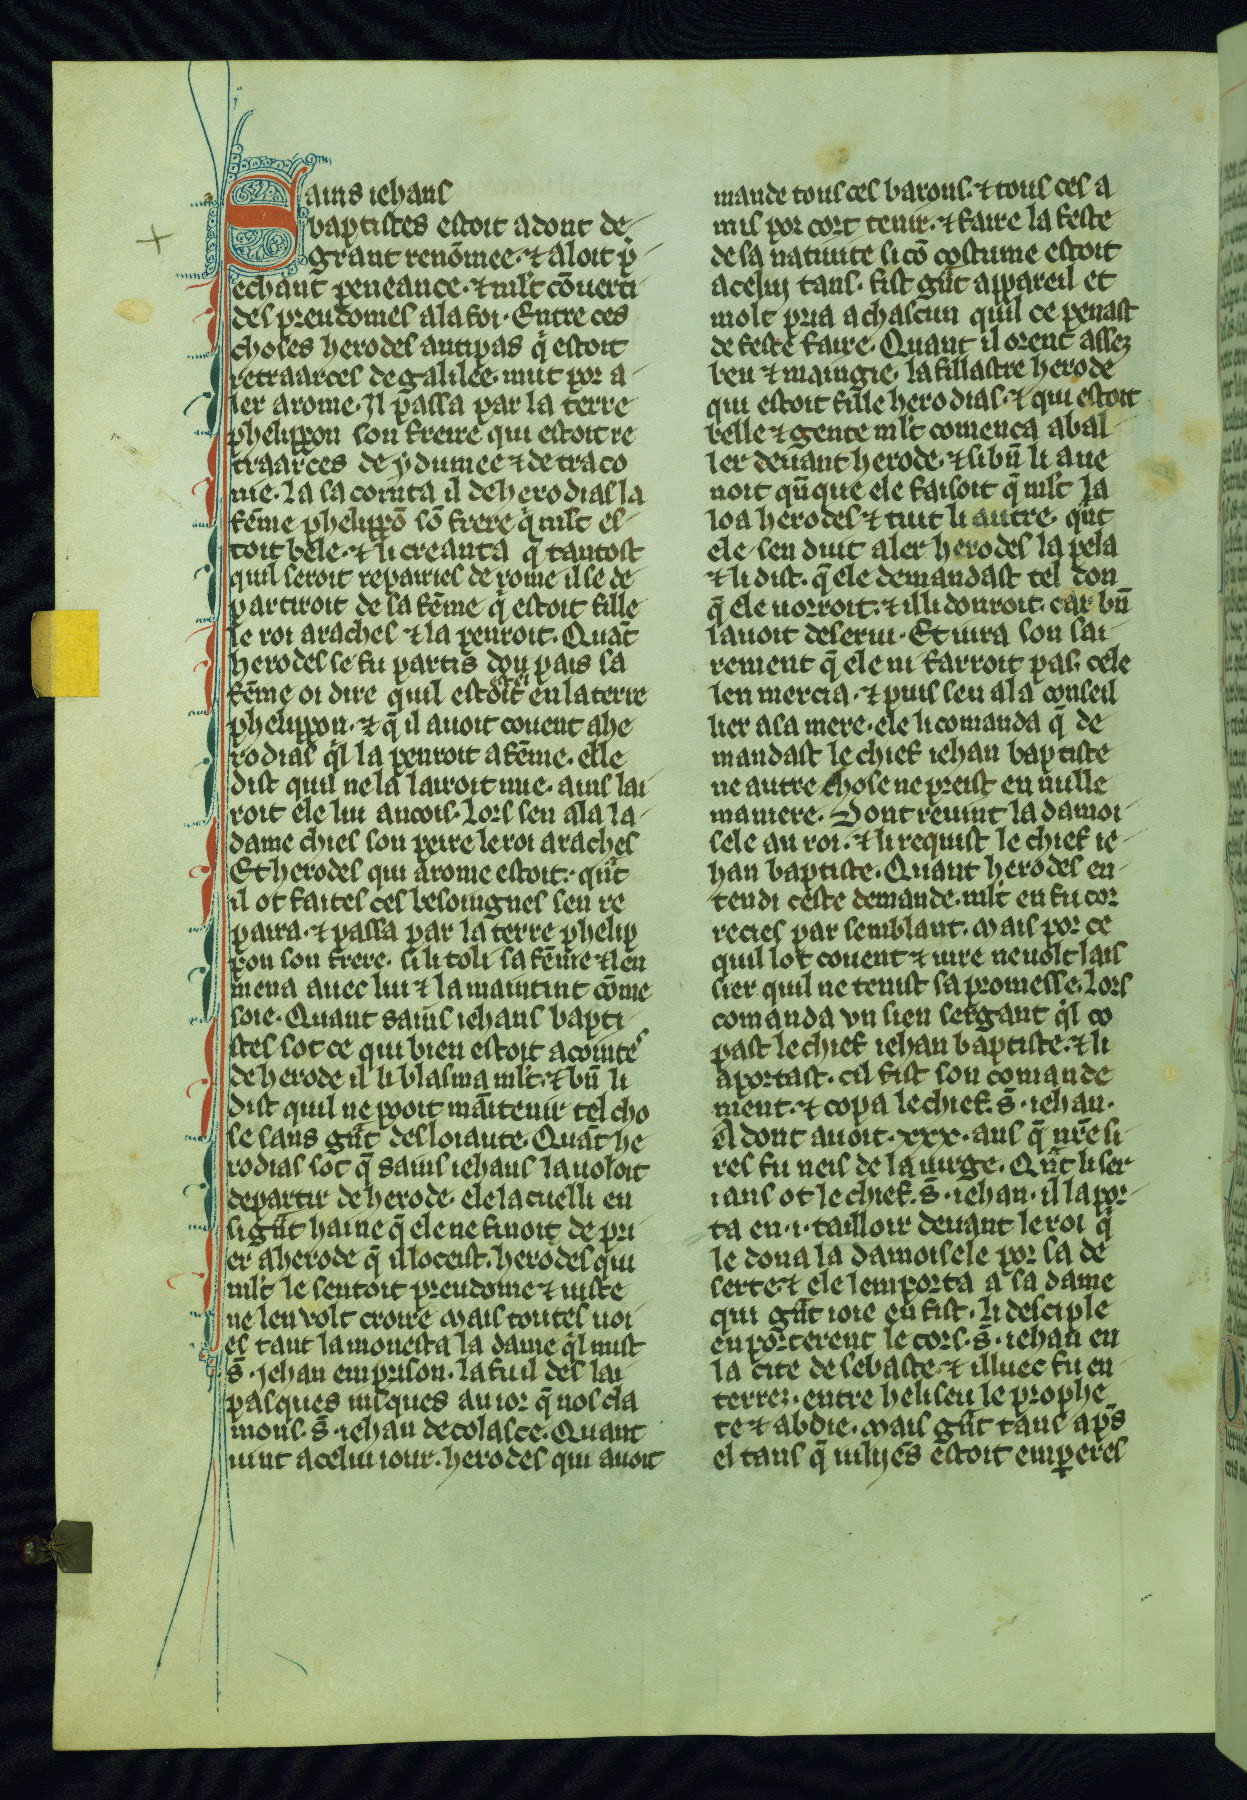 Sains iehans
baptistes estoit adont de
grant renōmee. ⁊ aloit p̄
echant peneance. ⁊ ml̄t cōuerti
des preudomes a la foi. Entre ces
choses herodes antipas q̄ estoit
tetraarces de galilee. mut por a
ler a rome. Il passa par la terre
phelippon son freire qui estoit te
traarces de ydumee ⁊ de traco
nie. la sacointa il de herodias la
fēme phelippō sō frere q̄ ml̄t es
toit bele. ⁊ li creanta q̄ tantost
quil seroit repairies de rome il se de
partiroit de sa fēme q̄ estoit fille
le roi araches ⁊ la penroit. Quāt
herodes se fu partis dou pais sa
fēme oi dire quil estoit en la terre
phelippon. ⁊ q̄ il auoit couent a he
rodias ql la penroit a fēme. elle
dist quil ne la lairoit mie. ains lai
roit ele lui ancois. Lors sen ala la
dame chies son peire le roi araches
Et herodes qui a rome estoit. qn̄t
il ot faites ces besoingnes sen re
paira. ⁊ passa par la terre phelip
pon son frere. si li toli sa fēme ⁊ len
mena auec lui ⁊ la maintint cōme
soie. Quant sains iehans bapti
stes sot ce qui bien estoit acointes
de herode il li blasma ml̄t. ⁊ bn̄ li
dist quil ne pooit māitenir tel cho
se sans gn̄t desloiaute. Quāt he
rodias sot q̄ sains iehans la voloit
departir de herode. ele lacuelli en
si gn̄t haine q̄ ele ne finoit de pri
er a herode q̄ il loceist. herodes qui
ml̄t le sentoit preudome ⁊ iuste
ne len volt croire mais toutes uoi
es tant lamonesta la dame ql mist
s̄. iehan em prison. la fu il des lai
pasques iusques au ior q̄ nos cla
mons. s̄. iehan decolasce. Quant
uint a celui iour. herodes qui auoit
mande tous ces barons. ⁊ tous ces a
mis por cort tenir. ⁊ faire la feste
de sa natiuite si cō costume estoit
a celui tans. fist gn̄t appareil et
molt pria a chascun quil ce penast
de feste faire. Quant il orent assez
beu ⁊ maingie. la fillastre herode
qui estoit fille herodias. ⁊ qui estoit
belle ⁊ gente ml̄t comenca a bal
ler deuant herode. ⁊ si bn̄ li aue
noit qn̄que ele faisoit q̄ ml̄t la
loa herodes ⁊ tuit li autre. qn̄t
ele sen duit aler herodes lapela
⁊ li dist. q̄ ele demandast tel don
q̄ ele uorroit. ⁊ il li donroit. car bn̄
lauoit deserui. Et iura son sai
rement q̄ ele ni farroit pas. cele
len mercia. ⁊ puis sen ala conseil
lier a sa mere. ele li comanda q̄ de
mandast le chief iehan baptiste
ne autre chose ne preist en nulle
maniere. Dont reuint la damoi
sele au roi. ⁊ li requist le chief ie
han baptiste. Quant herodes en
tendi ceste demande. ml̄t en fu cor
recies par semblant. mais por ce
quil lot couent ⁊ iure ne uolt lais
sier quil ne tenist sa promesse. Lors
comanda vn sien sergant ql co
past le chief iehan baptiste. ⁊ li
aportast. cil fist son comande
ment. ⁊ copa le chief. s̄. iehan.
Adont auoit. xxx. ans q̄ nr̄e si
res fu neis de la uirge. Qn̄t li ser
ians ot le chief. s̄. iehan. il lapor
ta en .i. tailloir deuant le roi q̄
le dona la damoisele por sa de
serte. ⁊ ele lemporta a sa dame
qui gn̄t ioie en fist. li desciple
en porterent le cors. s̄. iehan en
la cite de sebaste. ⁊ illuec fu en
terrez. entre heliseu le prophe
te ⁊ abdie. mais gn̄t tans ap̄s
el tans q̄ iuliiēs estoit emperes